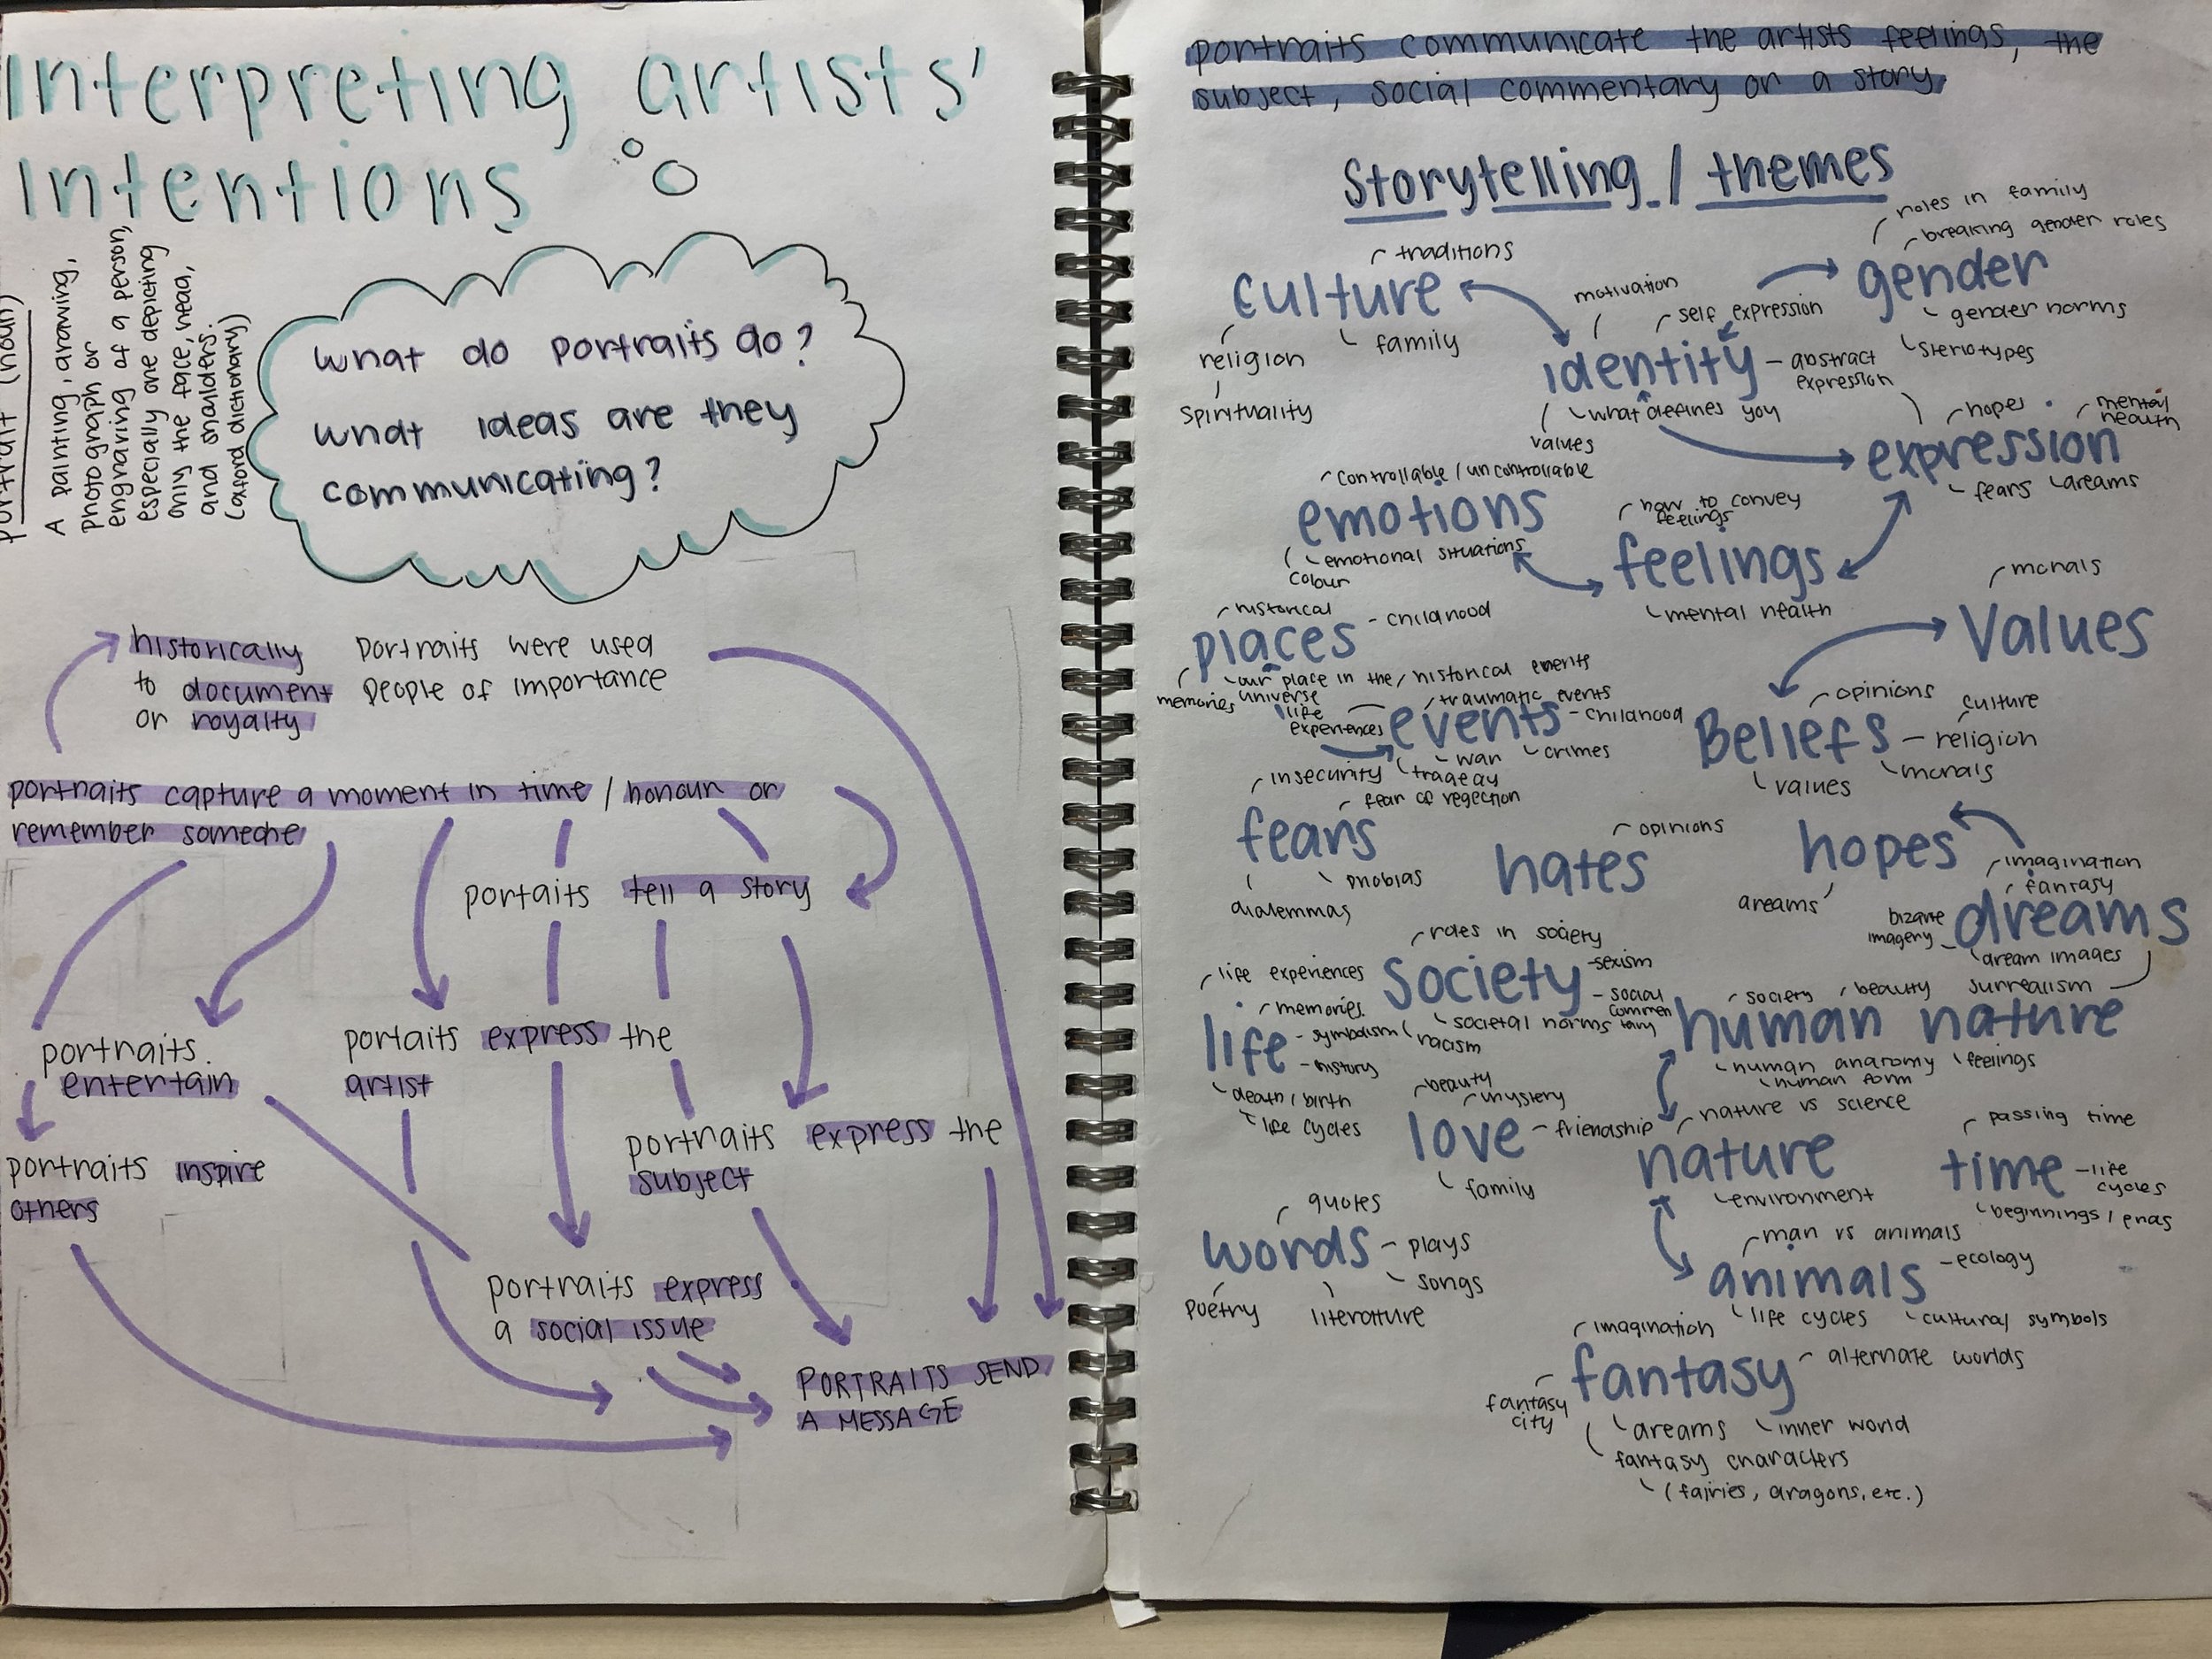 Interpreting artists'
Intentions
portrait (noun)
A painting, drawing,
photograph or
engraving of a person,
especially one depicting
only the face, head,
and shoulders.
(oxford dictionary)
What do portraits do?
What ideas are they
communicating?
historically portraits were used
to document people of importance
or royalty
portraits capture a moment in time / honour or
remember someone
portaits tell a story
portraits
entertain
portaits express the
artist
portraits express the
subject
portraits inspire
others
portraits express
a social issue
PORTRAITS SEND
A MESSAGE
portraits communicate the artists feelings, the
subject, social commentary or a story
Storytelling / themes
culture
traditions
religion
family
spirituality
gender
roles in family
breaking gender roles
gender norms
steriotypes
identity
motivation
self expression
abstract
expression
what defines you
values
expression
hopes
mental
health
fears
dreams
emotions
controllable / uncontrollable
emotional situations
colour
feelings
how to convey
feelings
mental health
values
morals
places
historical
childhood
our place in the
universe
memories
events
historical events
traumatic events
life
experiences
childhood
war
crimes
tragedy
Beliefs
opinions
culture
religion
morals
values
fears
insecurity
fear of regection
phobias
dialemmas
hates
opinions
hopes
dreams
dreams
imagination
fantasy
bizarre
imagery
dream images
surrealism
society
roles in society
sexism
social
commen
tary
societal norms
racism
life
life experiences
memories
symbolism
history
death / birth
life cycles
human nature
society
beauty
human anatomy
feelings
human form
love
beauty
mystery
friendship
family
nature
nature vs science
environment
time
passing time
life
cycles
beginnings / ends
words
quotes
plays
songs
poetry
literature
animals
man vs animals
ecology
life cycles
cultural symbols
fantasy
imagination
alternate worlds
fantasy
city
dreams
inner world
fantasy characters
(fairies, dragons, etc.)